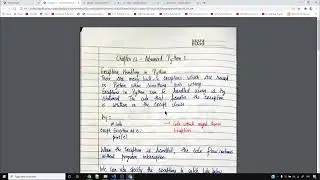 Chapter 12 - Advanced Python 1
Exception Handling in Python
There are many built-in exceptions which are raised
in Python when something goes wrong
Exceptions in Python can be handled using a try
statement. The code that handles the exception
is written in the except clause
try:
# Code → Code which might throw
except Exception as e: Exception
print(e)
When the exception is handled, the code flow continues
without program interruption.
We can also specify the exceptions to catch like below